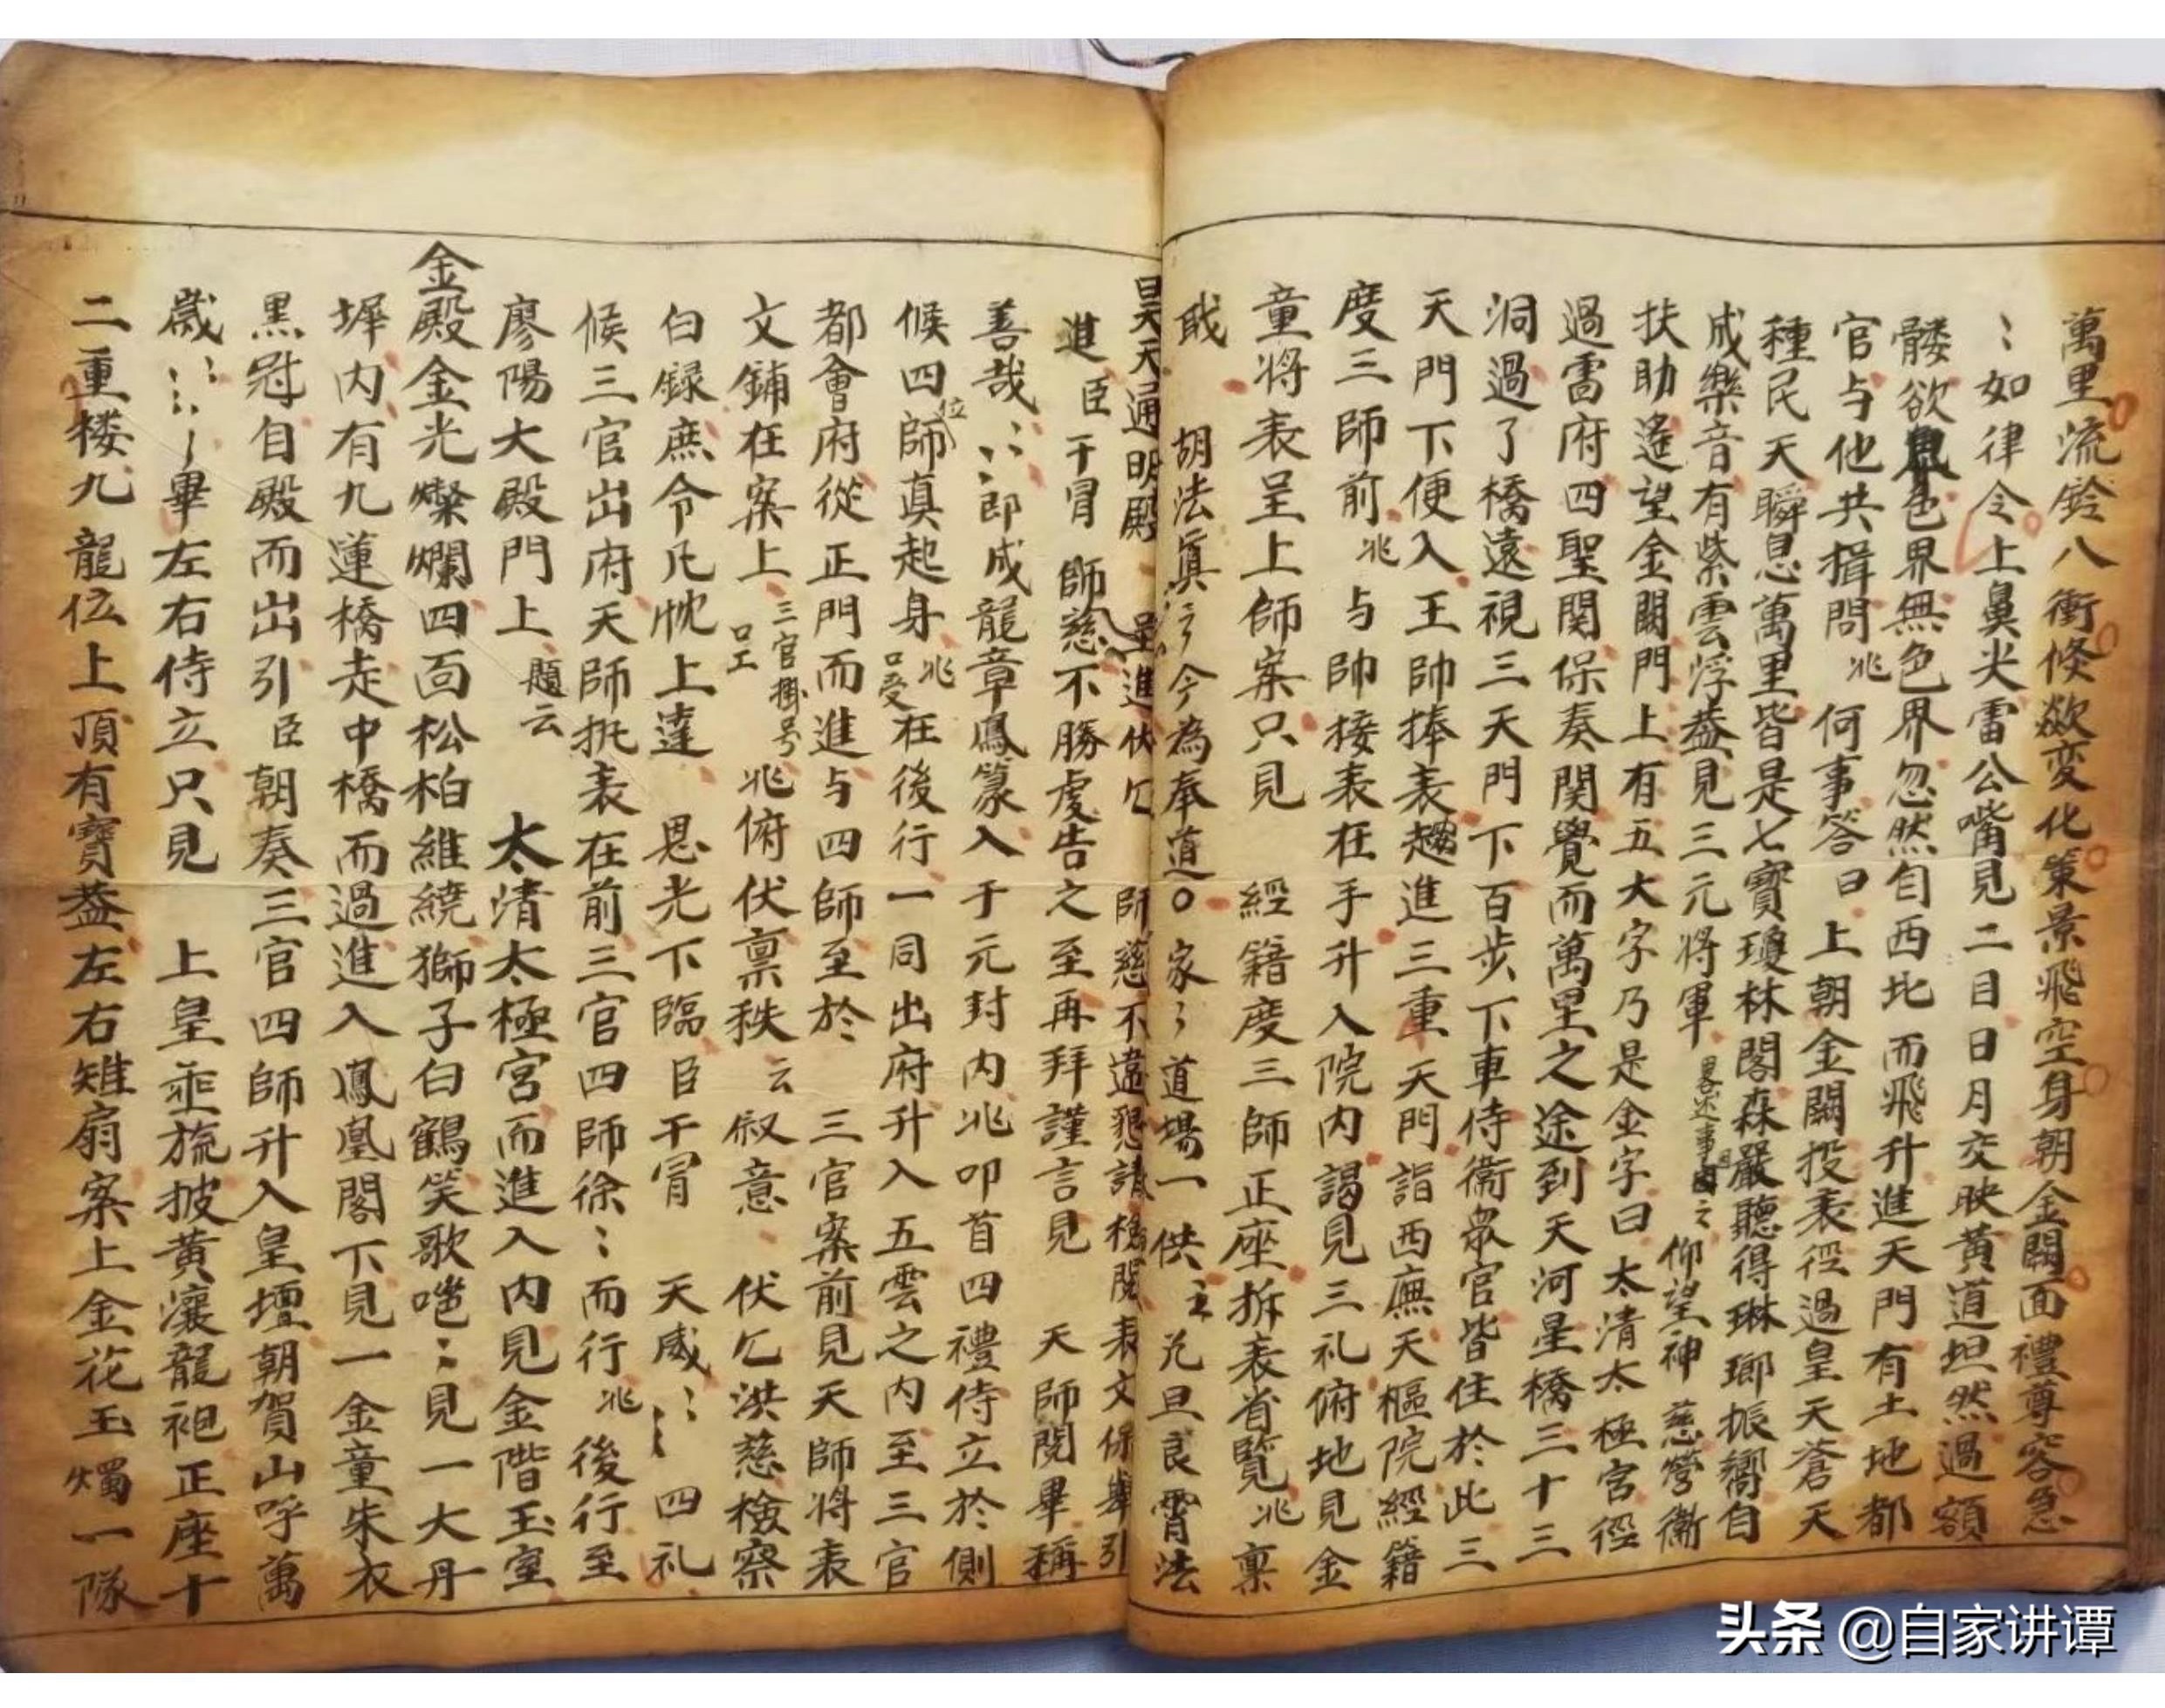 萬里流鈴八衝倏歘変化策景飛空身朝金闕面禮尊容急
〻如律令上鼻尖雷公嘴見二目日月交映黃道坦然過額
髏欲色界無色界忽然自西北而飛升進天門有土地都
官与他共揖問兆何事答曰上朝金闕投表徑過皇天蒼天
種民天瞬息萬里皆是七寶瓊林閣森嚴聽得琳瑯振嚮自
成樂音有紫雲浮盖見三元將軍畧述事之仰望神慈營衛
扶助遙望金闕門上有五大字乃是金字曰太清太極宮徑
過雷府四聖関保奏関覺而萬里之途到天河星橋三十三
洞過了橋遠視三天門下百步下車侍衛眾官皆住於此三
天門下便入王帥捧表趨進三重天門詣西廡天樞院經籍
度三師前兆与帥接表在手升入院內謁見三礼俯地見金
童將表呈上師案只見 經籍度三師正座拆表省覽兆稟
戝 胡法真〻今為奉道〇家〻道場一供之元旦良霄法
昊天通明殿 呈進伏乞 師慈不違懇請檢閱表文保舉引
進臣干冒 師慈不勝虔告之至再拜謹言見 天師閱畢稱
善哉〻〻即成龍章鳳篆入于元封內兆叩首四禮侍立於側
候四師位真起身兆在後行一同出府升入五雲之內至三官
都會府從正門而進与四師至於 三官案前見天師將表
文鋪在案上三官掛号兆俯伏禀秩云叙意 伏乞洪慈檢察
白録庶令凡忱上達 恩光下臨臣干冐 天威〻〻四礼
候三官出府天師執表在前三官四師徐〻而行兆後行至
廖陽大殿門上題云 太清太極宮而進入內見金階玉室
金殿金光燦爛四面松柏維繞獅子白鶴笑歌唈〻見一大丹
墀內有九蓮橋走中橋而過進入鳳凰閣下見一金童朱衣
黒冠自殿而出引臣朝奏三官四師升入皇壇朝賀山呼萬
歲〻〻〻畢左右侍立只見 上皇垂旒披黃瀼龍袍正座十
二重楼九龍位上頂有寶盖左右雉扇案上金花玉燭一隊
头条 @自家讲谭